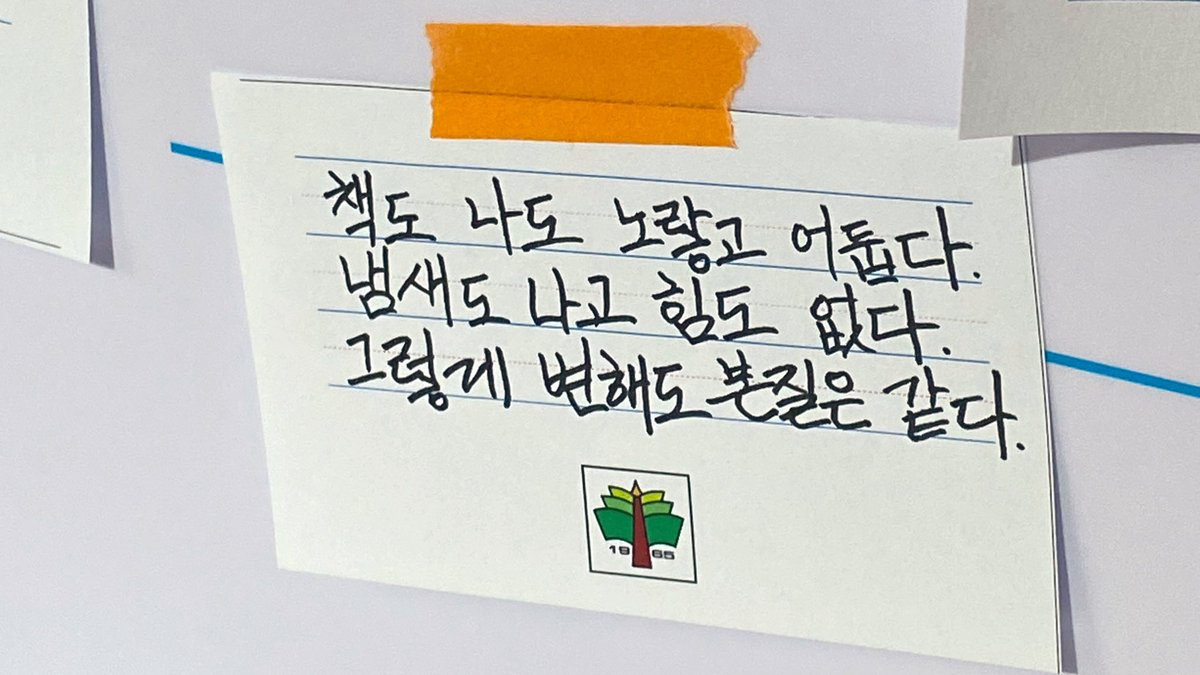 책도 나도 노랗고 어둡다.
냄새도 나고 힘도 없다.
그렇게 변해도 본질은 같다.
1965